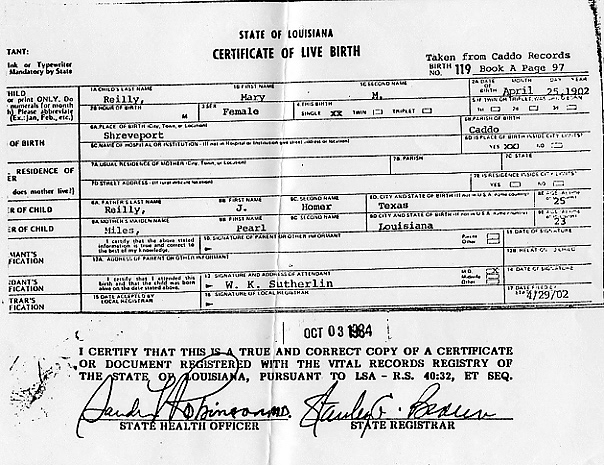 STATE OF LOUISIANA
CERTIFICATE OF LIVE BIRTH
TANT:
Ink or Typewriter
Mandatory by State
Taken from Caddo Records
BIRTH NO. 119 Book A Page 97
HILD
or print ONLY. Do
numerals for month
h) Please abbreviate
(Ex.: Jan, Feb., etc.)
1A CHILD'S LAST NAME 1B FIRST NAME 1C SECOND NAME 2A DATE OF BIRTH MONTH DAY YEAR
Reilly, Mary M. April 25, 1902
2B HOUR OF BIRTH M 3 SEX Female 4 THIS BIRTH SINGLE XX TWIN TRIPLET
1st 2d 3d
OF BIRTH
6A. PLACE OF BIRTH (City, Town, or Location) 6B PARISH OF BIRTH
Shreveport Caddo
6C NAME OF HOSPITAL OR INSTITUTION 6D IS PLACE OF BIRTH INSIDE CITY LIMITS?
YES XX NO
RESIDENCE OF
ER
does mother live?)
7A USUAL RESIDENCE OF MOTHER (City, Town, or Location) 7B PARISH 7C STATE
7D STREET ADDRESS 7E IS RESIDENCE INSIDE CITY LIMITS?
YES NO
ER OF CHILD
8A. FATHER'S LAST NAME 8B FIRST NAME 8C SECOND NAME 8D. CITY AND STATE OF BIRTH
Reilly, J. Homer Texas 25
ER OF CHILD
9A MOTHER'S MAIDEN NAME 9B FIRST NAME 9C SECOND NAME 9D CITY AND STATE OF BIRTH
Miles, Pearl Louisiana 23
MANT'S
FICATION
I certify that the above stated
information is true and correct to
the best of my knowledge.
10 SIGNATURE OF PARENT OR OTHER INFORMANT Parent Other 11 DATE OF SIGNATURE
12A. ADDRESS OF PARENT OR OTHER INFORMANT
DANT'S
FICATION
I certify that I attended this
birth and that the child was born
alive on the date stated above.
13 SIGNATURE AND ADDRESS OF ATTENDANT M.D. X Midwife Other 14 DATE OF SIGNATURE
W. K. Sutherlin
TRAR'S
FICATION
15 DATE ACCEPTED BY LOCAL REGISTRAR 16 SIGNATURE OF LOCAL REGISTRAR 17 DATE FILED BY
4/29/02
OCT 03 1984
I CERTIFY THAT THIS IS A TRUE AND CORRECT COPY OF A CERTIFICATE
OR DOCUMENT REGISTERED WITH THE VITAL RECORDS REGISTRY OF
THE STATE OF LOUISIANA, PURSUANT TO LSA - R.S. 40:32, ET SEQ.
STATE HEALTH OFFICER STATE REGISTRAR